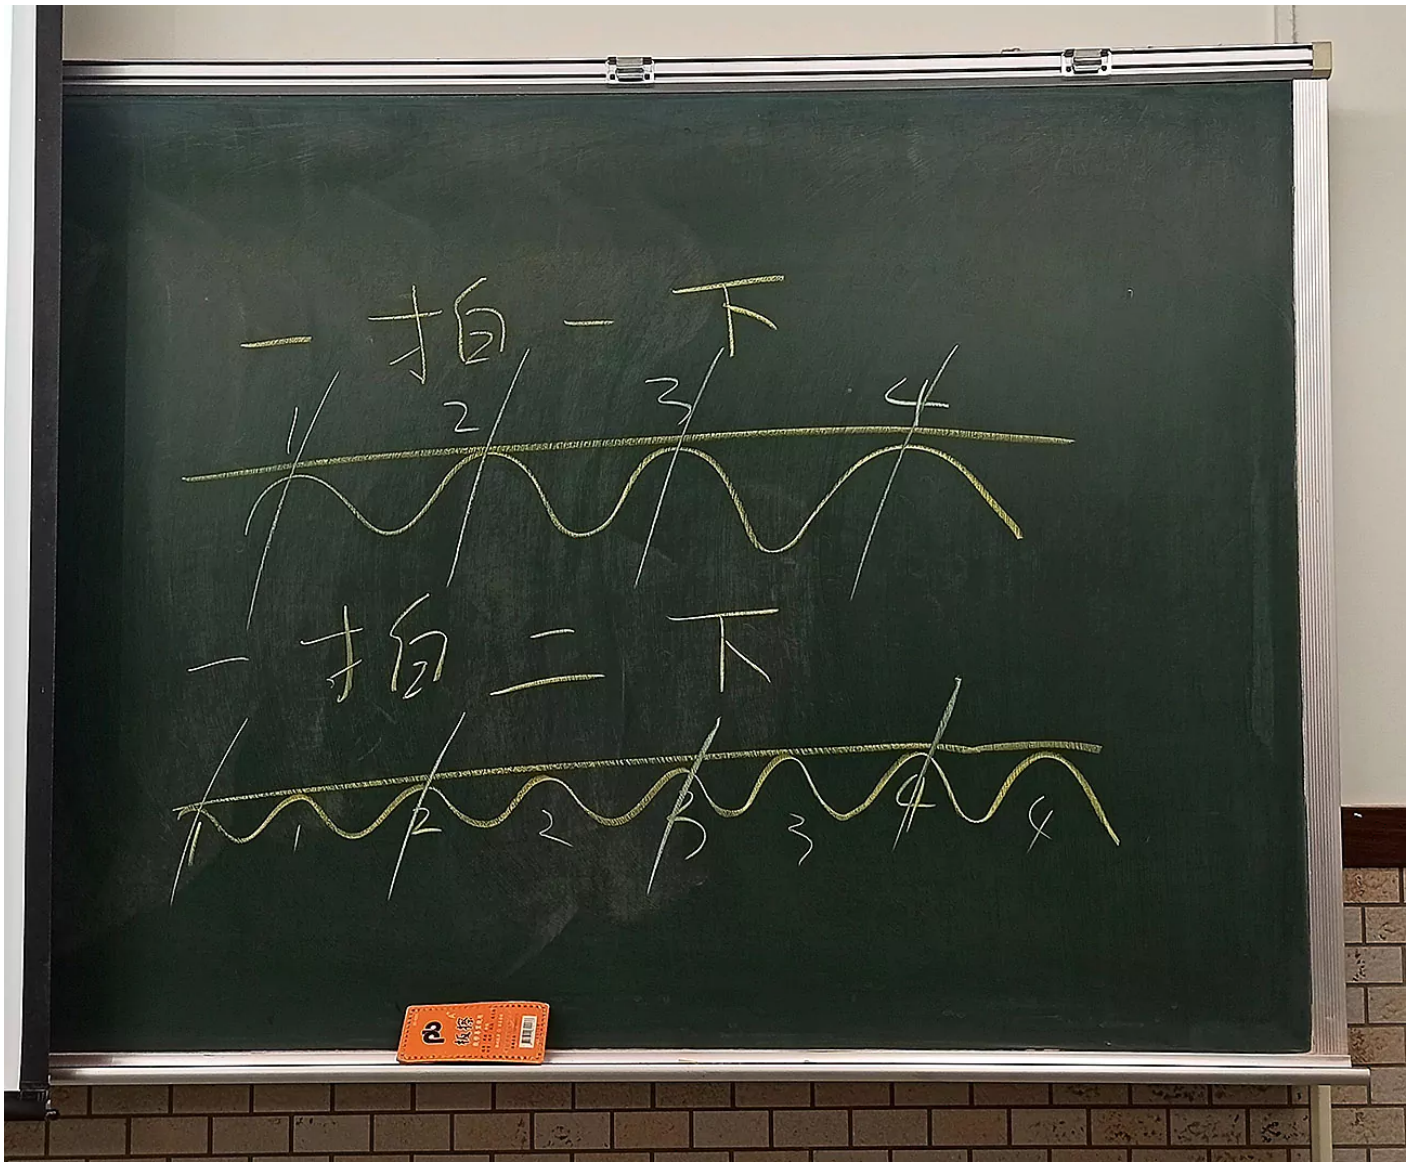 一拍一下
1 2 3 4
一拍二下
1 1 2 2 3 3 4 4
板擦